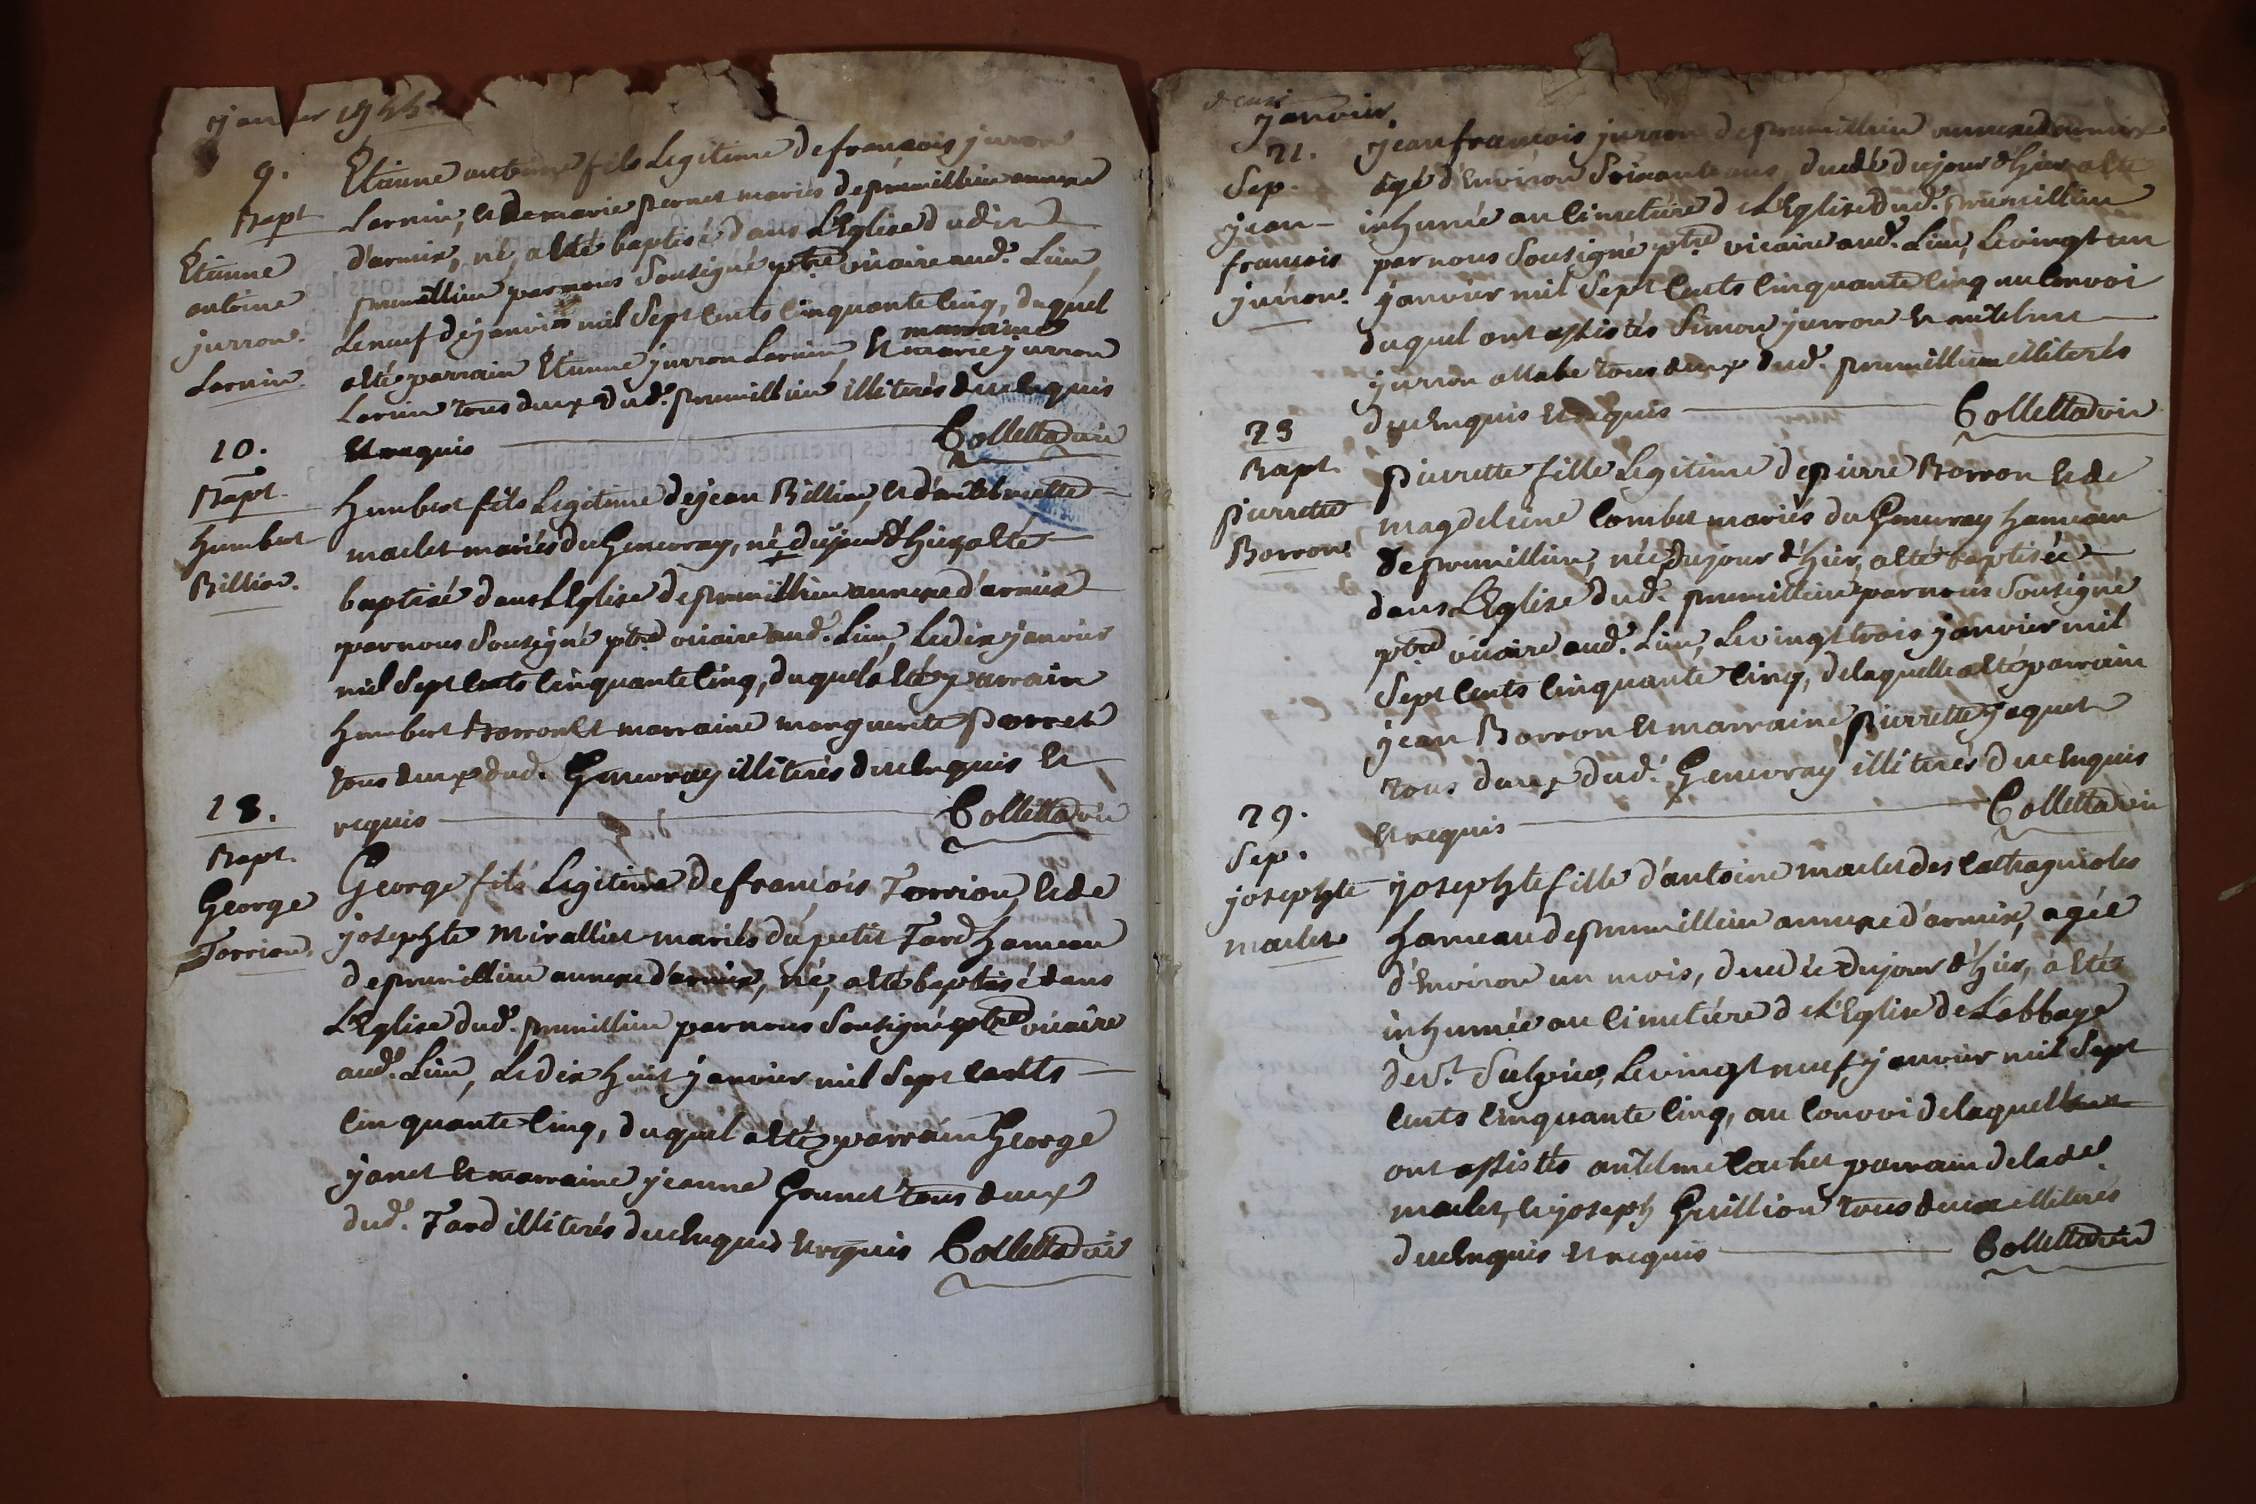 janvier 1755
9.
Bapt
Etienne
antoine
jurron.
Lornin
Etienne antoine fils Legitime de francois jurron
Lornin, et de marie pernet mariés de prumillieu annexe
d'armix, né, a eté baptisé dans L'Eglise dudit
prumillieu par nous Sousigné ptre vicaire aud. Lieu,
Le neuf de janvier mil Sept Cents Cinquante Cinq, duquel
a eté parrain Etienne jurron Lornin, Et marraine marie jurron
Lornin tous deux dud. prumillieu illiterés de ce enquis
Et requis Colletta vic
10.
Bapt.
humbert
Billion.
humbert fils Legitime de jean Billion, et d'anthelmette
maclet mariés du Genevray, né du jour d'hier, a eté
baptisé dans L'Eglise de prumillieu annexe d'armix
par nous Sousigné ptre vicaire aud. Lieu, Le dix janvier
mil Sept Cents Cinquante Cinq, duquel a eté parrain
humbert Borron Et marraine marguerite Porret
tous deux dud. Genevray illiterés de ce enquis Et
requis Colletta vic
18.
Bapt.
George
Torrion.
George fils Legitime de francois Torrion, et de
josephte Miralliet mariés du petit Tard hameau
de prumillieu annexe d'armix, né, a eté baptisé dans
L'Eglise dud. prumillieu par nous Sousigné ptre vicaire
aud. Lieu, Le dix huit janvier mil Sept Cents
Cinquante Cinq, duquel a eté parrain George
janet Et marraine jeanne Gounet tous deux
dud. Tard illiterés de ce enquis Et requis Colletta vic
janvier.
21.
Sep.
jean-
francois
jurron.
jean francois jurron de prumillieu annexe d'armix
agé d'Environ Soixante ans, decedé du jour d'hier a eté
inhumé au Cimetiere de L'Eglise dud. prumillieu
par nous Sousigné ptre vicaire aud. Lieu, Le vingt un
janvier mil Sept Cents Cinquante Cinq au Convoi
duquel ont assistés Simon jurron Et anthelme
jurron allabe tous deux dud. prumillieu illiterés
de ce enquis Et requis Colletta vic
23
Bapt.
Pierrette
Borron
Pierrette fille Legitime de pierre Borron et de
magdeleine Combet mariés du Genevray hameau
de prumillieu, née du jour d'hier, a eté baptisée
dans L'Eglise dud. prumillieu par nous Sousigné
ptre vicaire aud. Lieu, Le vingt trois janvier mil
Sept Cents Cinquante Cinq, de laquelle a eté parrain
jean Borron Et marraine pierrette jaquet
tous deux dud. Genevray illiterés de ce enquis
Et requis Colletta vic
29.
Sep.
josephte
maclet
josephte fille d'antoine maclet des
hameau de prumillieu annexe d'armix, agée
d'Environ un mois, decedée du jour d'hier, a eté
inhumée au Cimetiére de L'Eglise de L'abbaye
de St. Sulpice, Le vingt neuf janvier mil Sept
Cents Cinquante Cinq, au Convoi de laquelle
ont assistés anthelme Cachet parrain de lade.
maclet, et joseph Guillion tous deux illiterés
de ce enquis Et requis Colletta vic